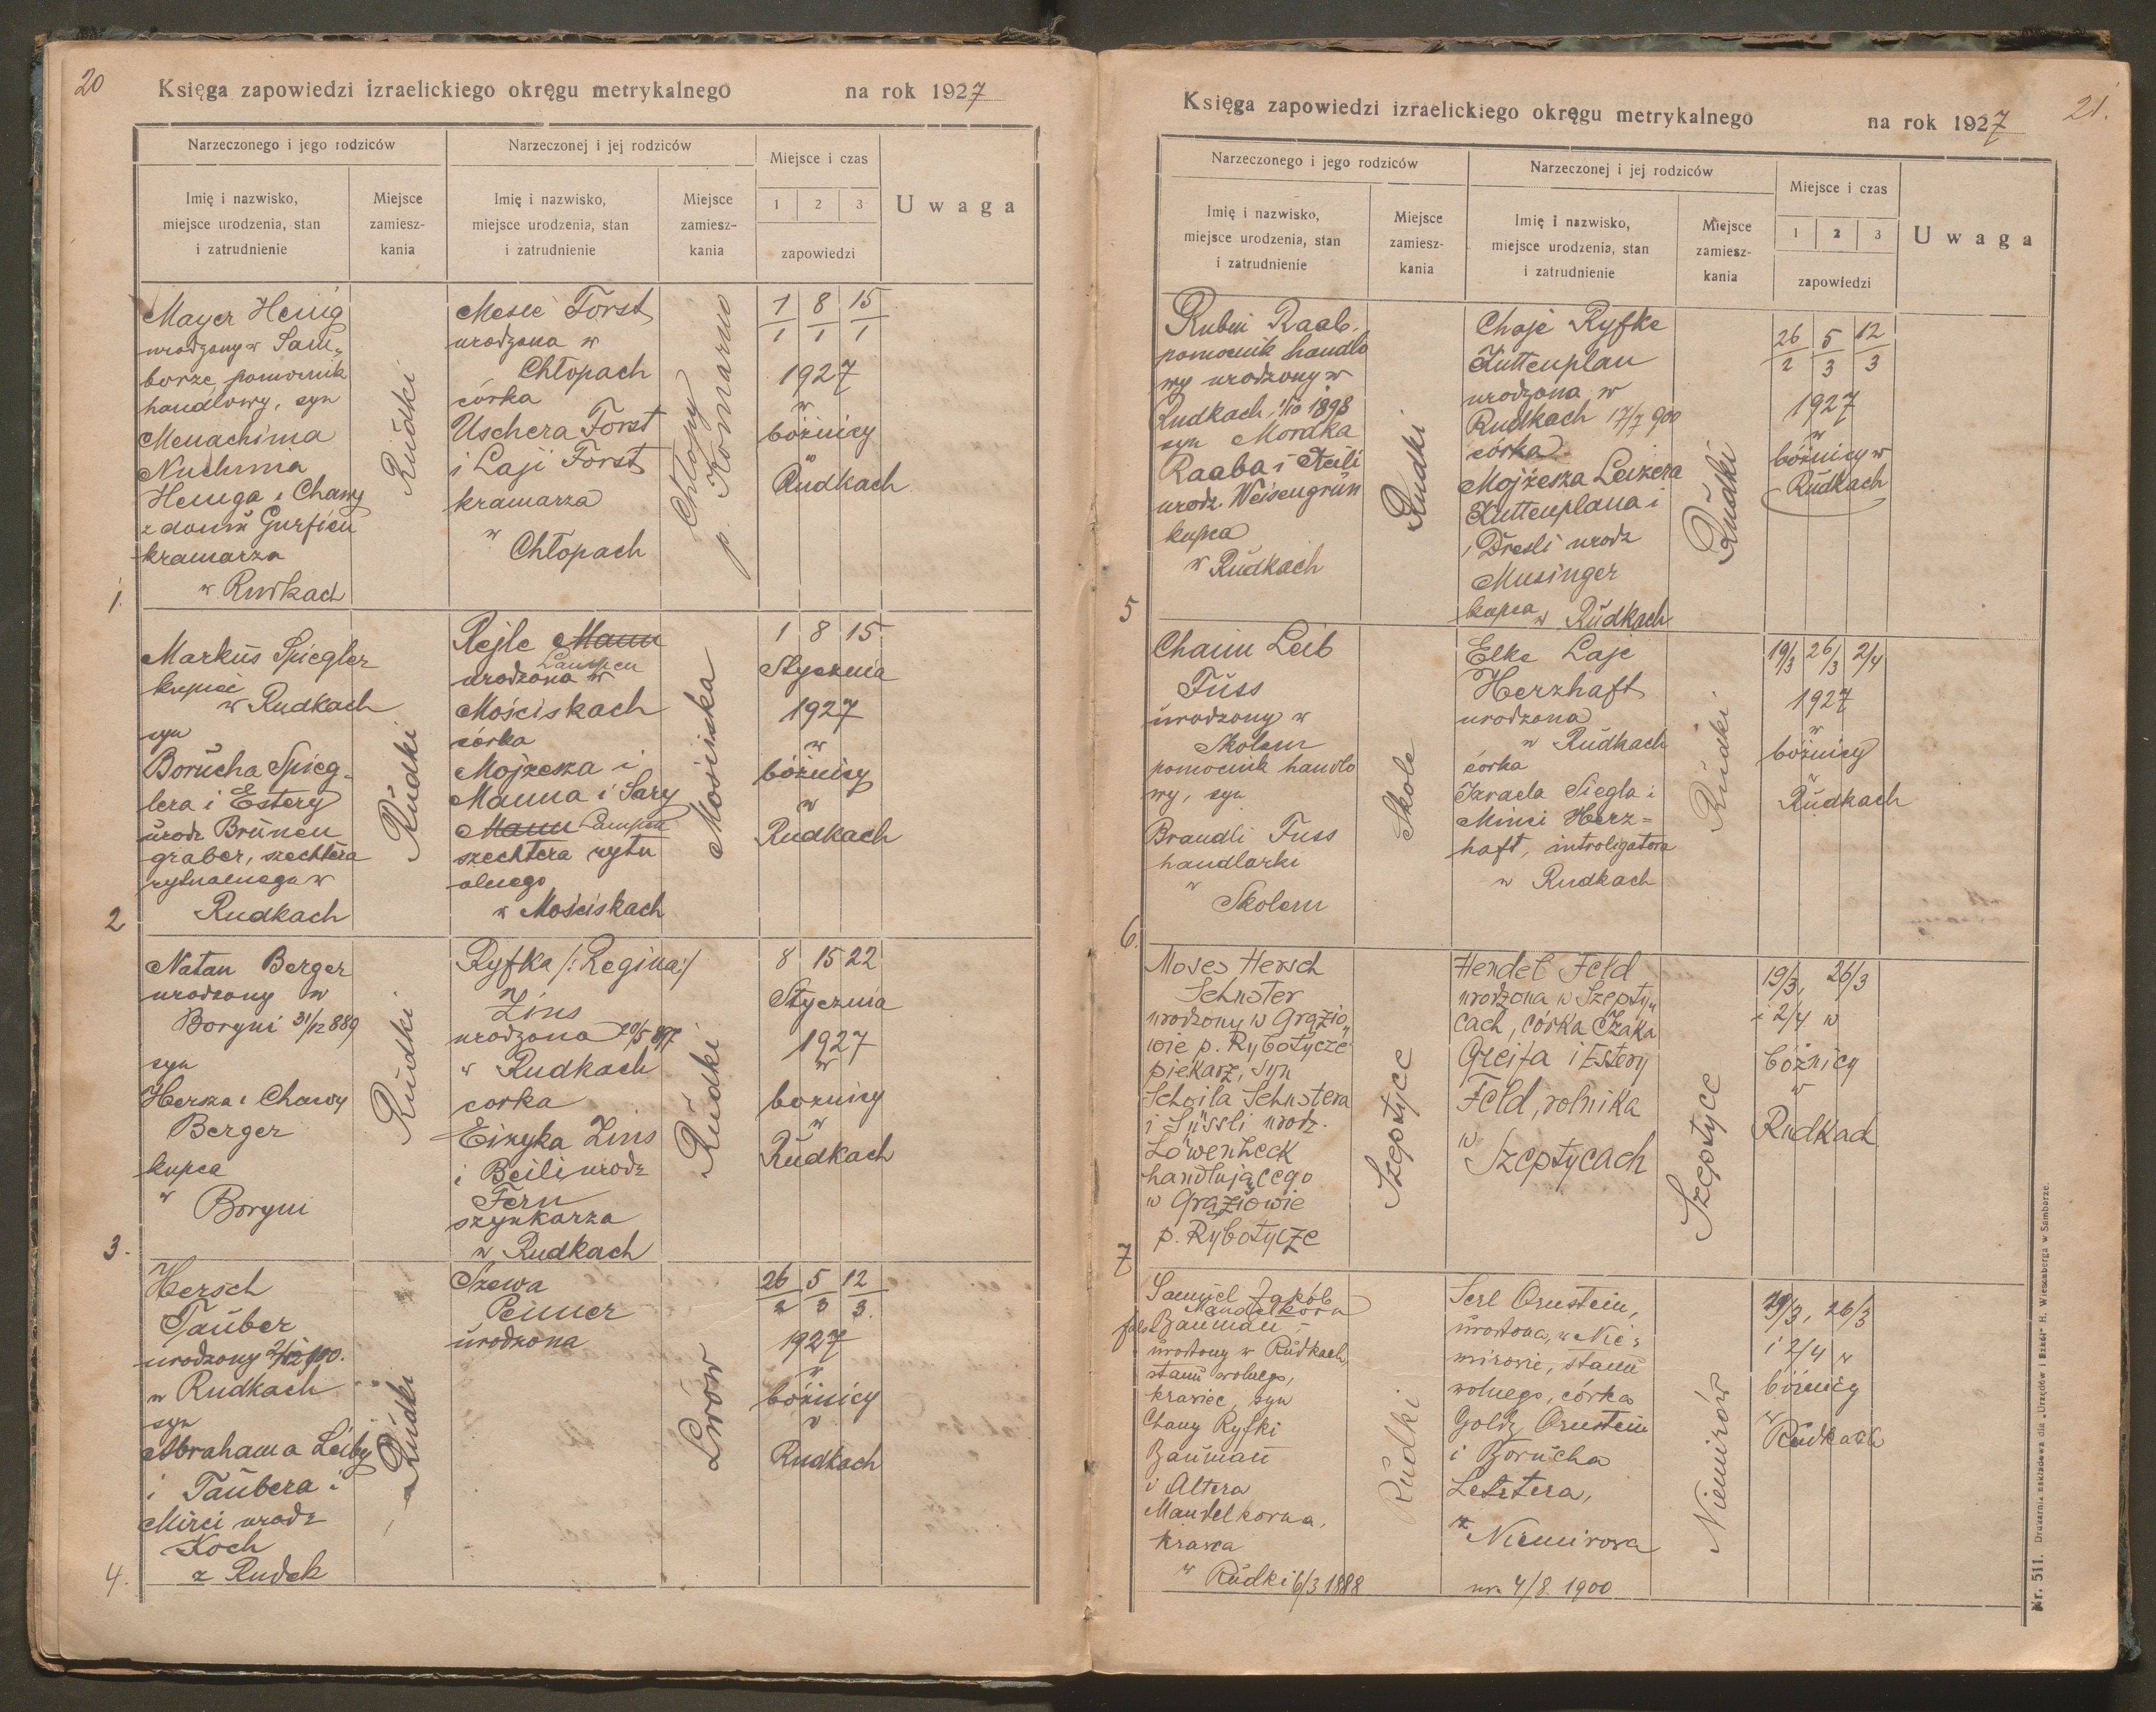 20
Księga zapowiedzi izraelickiego okręgu metrykalnego na rok 1927
Narzeczonego i jego rodziców
Narzeczonej i jej rodziców
Miejsce i czas
Uwaga
Imię i nazwisko,
miejsce urodzenia, stan
i zatrudnienie
Miejsce
zamiesz-
kania
Imię i nazwisko,
miejsce urodzenia, stan
i zatrudnienie
Miejsce
zamiesz-
kania
1 2 3
zapowiedzi
1.
Mayer Henig
urodzony w Sam„
borze, pomocnik
handlowy, syn
Menachima
Nuchima
Heniga i Chawy
z domu Gurfien
kramarza
w Rudkach
Rudki
Mesie Forst
urodzona w
Chłopach
córka
Uschera Forst
i Laji Forst
kramarza
w
Chłopach
Chłopy
p. Komarno
1/1 8/1 15/1
1927
w
bóżnicy
w
Rudkach
2
Markus Spiegler
kupiec
w Rudkach
syn
Borucha Spieg-
lera i Estery
urodz Brunen
graber, szechtera
rytualnego w
Rudkach
Rudki
Rejle Mann
Lampen
urodzona w
Mościskach
córka
Mojżesza i
Manna i Sary
Mann Lampen
szechtera rytu
alnego
w Mościskach
Mościska
1 8 15
Stycznia
1927
w
bóżnicy
w
Rudkach
3.
Natan Berger
urodzony w
Boryni 31/12 889
syn
Hersza i Chawy
Berger
kupca
w
Boryni
Rudki
Ryfka /:Regina:/
Zins
urodzona 20/5 897
w Rudkach
corka
Eizyka Zins
i Beili urodz
Fern
szynkarza
w Rudkach
Rudki
8 15 22
Stycznia
1927
w
bożnicy
w
Rudkach
4.
Hersch
Tauber
urodzony 2/12 900.
w Rudkach
syn
Abrahama Leiby
i Taubera i
Mirci urodz
Koch
z Rudek
Rudki
Szewa
Peimer
urodzona
Lwów
26/2 5/3 12/3.
1927
w
bóżnicy
w
Rudkach
21.
Księga zapowiedzi izraelickiego okręgu metrykalnego na rok 1927
Narzeczonego i jego rodziców
Narzeczonej i jej rodziców
Miejsce i czas
Uwaga
Imię i nazwisko,
miejsce urodzenia, stan
i zatrudnienie
Miejsce
zamiesz-
kania
Imię i nazwisko,
miejsce urodzenia, stan
i zatrudnienie
Miejsce
zamiesz-
kania
1 2 3
zapowiedzi
5
Rubin Raab,
pomocnik handlo
wy urodzony w
Rudkach, 1/10 1898
syn Mordka
Raaba i
urodz. Weisengrün
kupca
w Rudkach
Rudki
Chaje Ryfke
Kuttenplan
urodzona w
Rudkach 17/7 900
córka
Mojżesza Leizera
Kuttenplana i
i Dresli urodz
Musinger
kupca w Rudkach
Rudki
26/2 5/3 12/3
1927
w
bóżnicy w
Rudkach
6.
Chaim Leib
Fuss
urodzony w
Skolem
pomocnik handlo
wy, syn
Brandli Fuss
handlarki
w
Skolem
Skole
Elke Laje
Herzhaft
urodzona
w Rudkach
córka
Izraela Siegla i
Minci Herz=
haft, introligatora
w Rudkach
Rudki
19/3 26/3 2/4
1927
w
bóżnicy
w
Rudkach
7
Moses Hersch
Schuster
urodzony w Grązio„
wie p. Rybotycze
piekarz, syn
Schoila Schustera
i Süssli urodz.
Löwenheck
handlującego
w Grąziowie
p. Rybotycze
Szeptyce
Hendel Feld
urodzona w Szepty„
cach, córka Izaka
Greifa i Estery
Feld, rolnika
w
Szeptycach
Szeptyce
19/3, 26/3
i 2/4 w
bóżnicy
w
Rudkach
Samuel Jakób
Mandelkorn
fals. Bauman
urodzony w Rudkach,
stanu wolnego,
krawiec, syn
Chany Ryfki
Bauman
i Altera
Mandelkorna,
krawca
w Rudki 6/3 1888
Rudki
Serl Ornstein,
urodzona, w Nie„
mirowie, stanu
wolnego, córka
Goldy Ornstein
i Borucha
Letztera,
z Niemirowa
ur. 4/8 1900
Niemirów
19/3, 26/3
i 2/4 w
bóżnicy
w
Rudkach
Nr. 511. Drukarnia nakładowa dla „Urzędów i Szkół“ H. Wiesenberga w Samborze.